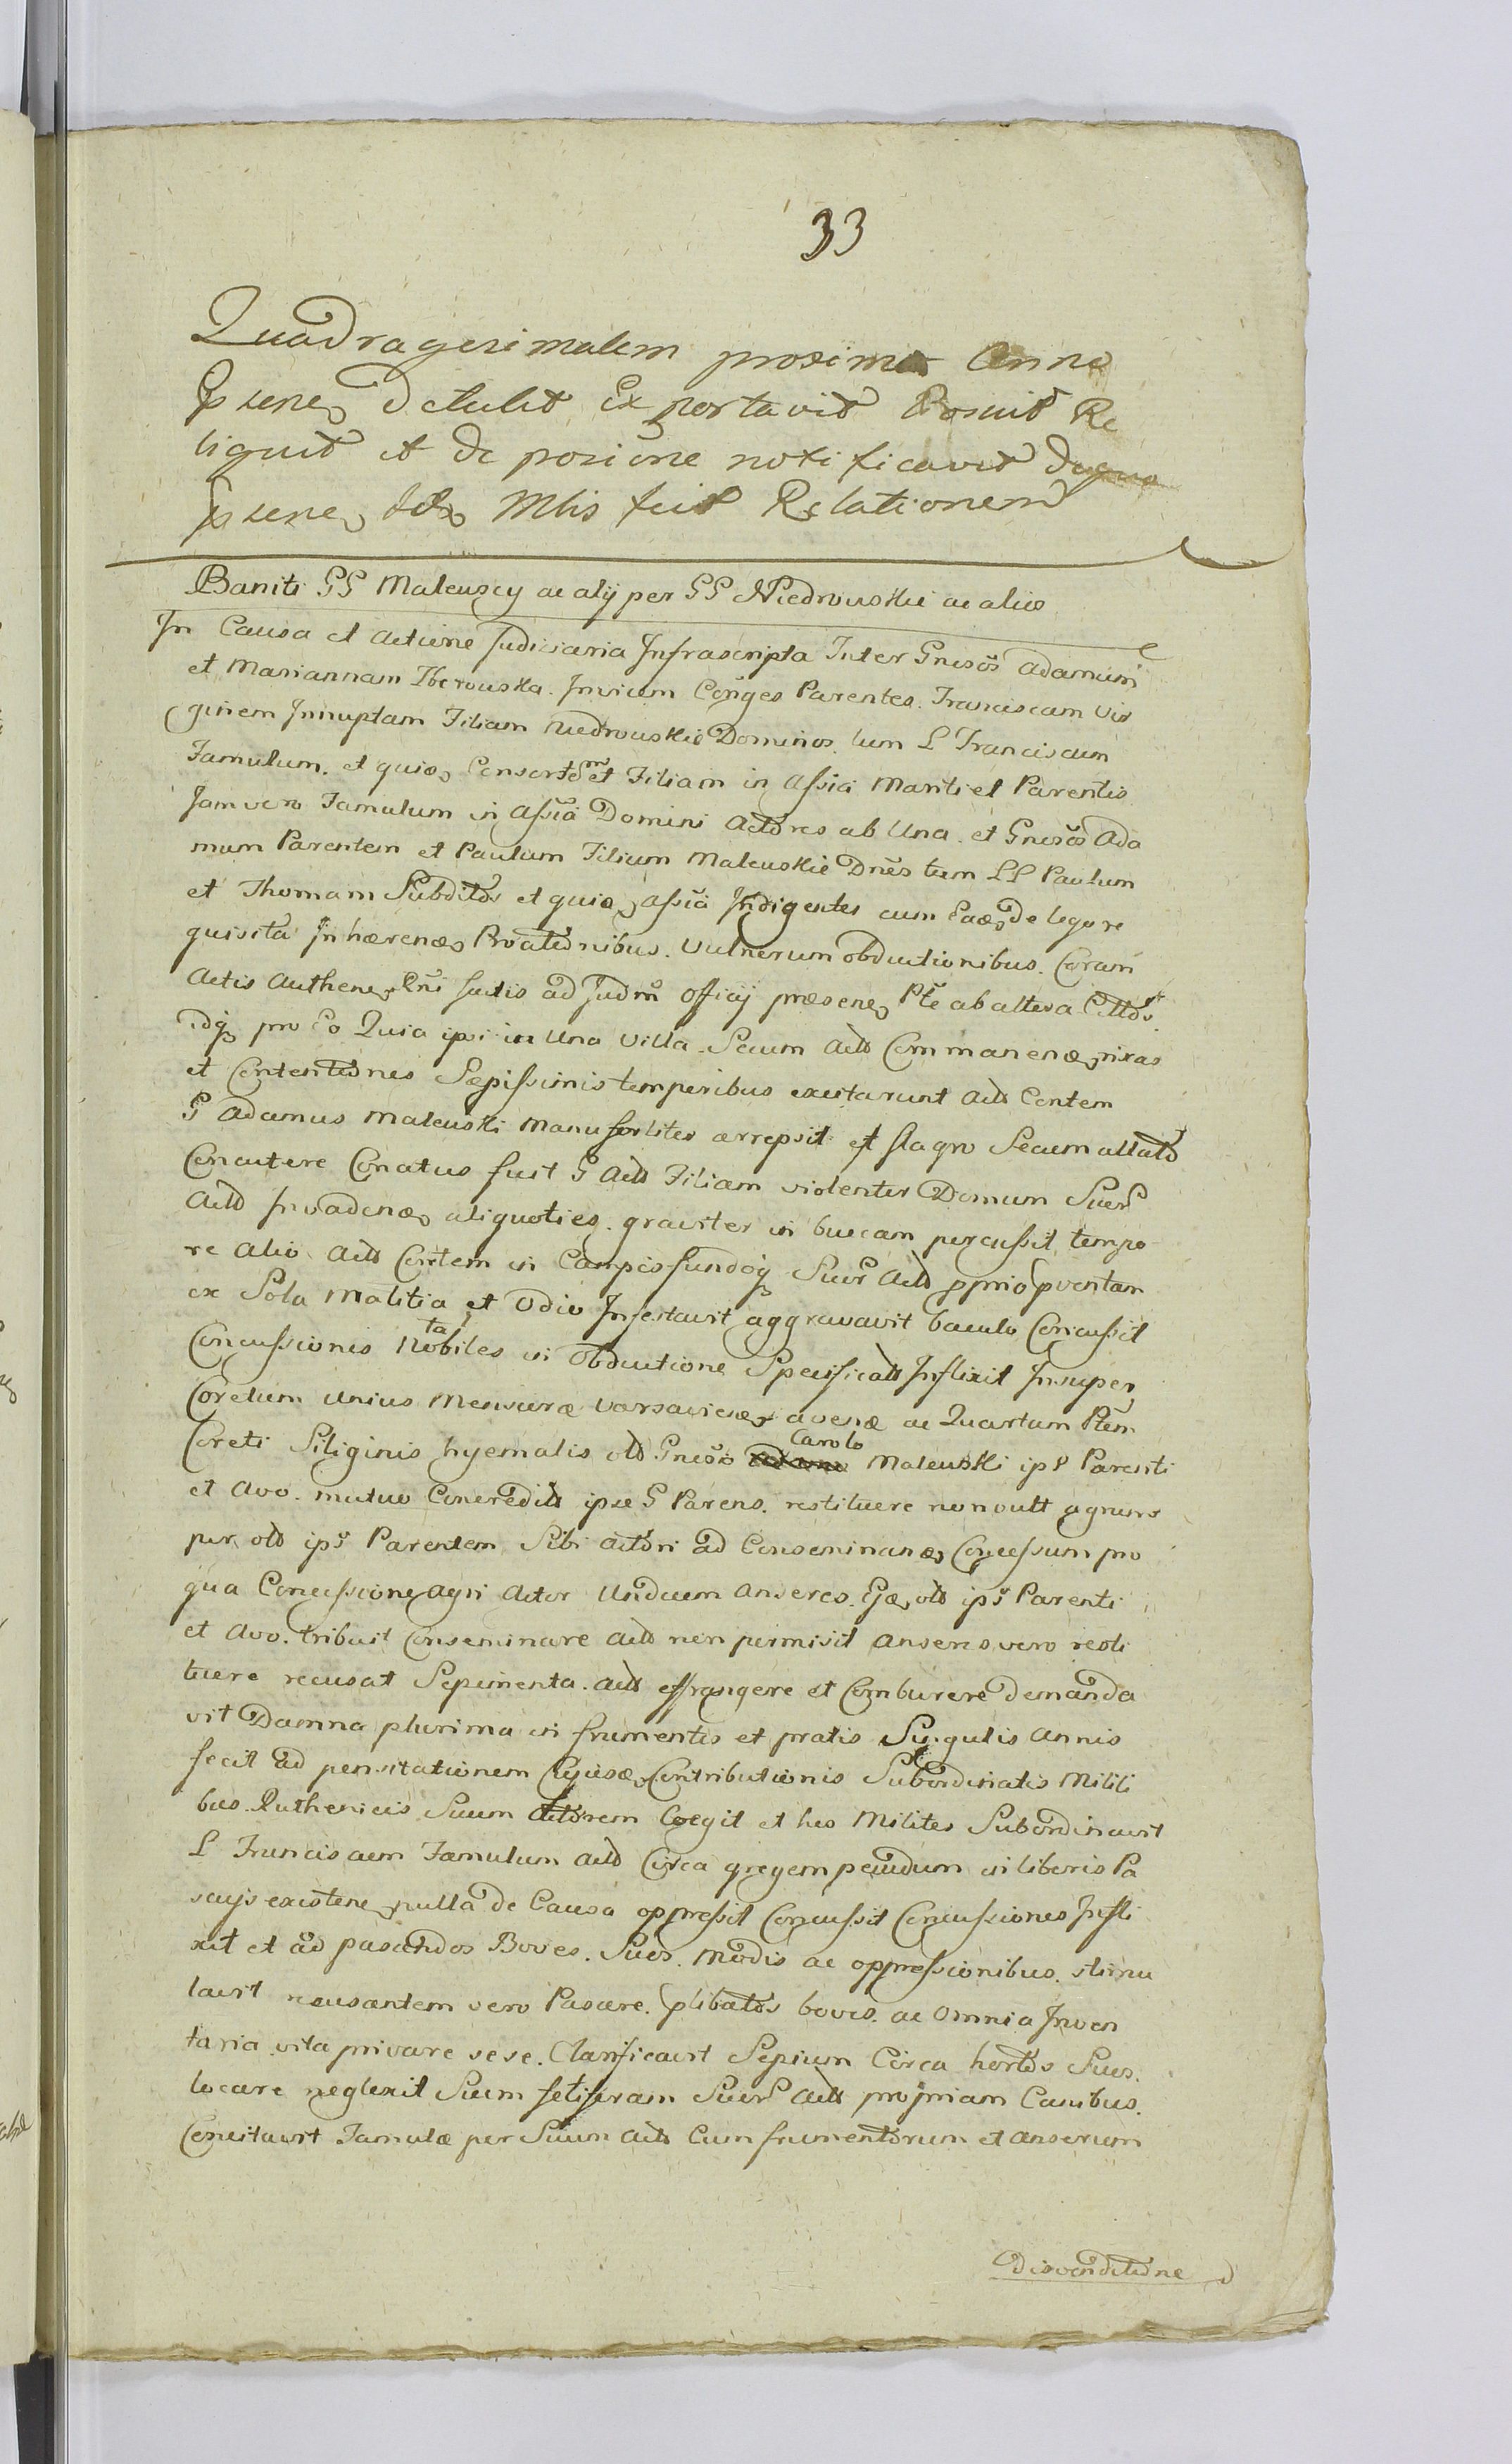 33
Quadragesimalem proxime Anno
Psene, detulit Exportavit Posuit Re
liquit et de posicione notificavit de qua
Psene, suam Mlis fecit Relationem
Baniti GG Maleuscy ac alij per GG Niedrouskie ac alios
In Causa et Actione Judiciaria Infrascripta Inter Gnesos Adamum
et Mariannam Zberouska Invicem Conges Parentes Franciscam Vir
ginem Innuptam Filiam Niedrouskie Dominos tum L Franciscum
Famulum et quidem Consortem et Filiam in Assia Mariti et Parentis
Jam vero Famulum in Assia Domini Actores ab Una et Gnesos Ada
mum Parentem et Paulum Filium Maleuskie Dnes tum LL Paulum
et Thomam Subditos et quia, assia Indigentes cum Ea, de lege re
quisita Inhaerena, Protionibus Vulnerum obductionibus Coram
Actis Authene, factis ad Judm Officij praesene, Pte ab altera Cittos
idq pro Eo Quia ipsi in Una Villa Secum Actb Commanenae, rixas
et Contentiones Saepissimis temporibus excitarunt Actb Contem
G Adamus Maleuski manu fortiter arrepsit et flagro Secum allato
Concutere Conatus fuit G Actb Filiam violenter Domum Suor
Actb Invadenae, aliquoties graviter in buccam percussit tempo
re Alio Actb Contem in Campis fundoq Suor Actb pprio pventam
ex Sola Malitia et Odio Infestavit aggravavit baculo Concussit
Concussiones Notabiles in Obductione Specificatas Inflixit Insuper
Coretum unius Mensurae Varsaviene, avenae ac Quartam Ptem
Coreti Siliginis hyemalis olb Gneso Carolo Maleuski ips Parenti
et Avo mutuo Concreditb ipse G Parens restituere non vult agrum
per olb ips Parentem Sibi Actori ad Conseminanae, Concessum pro
qua Concessione Agri Actor Undecim Anseres Ejae, olb ips Parenti
et Avo tribuit Conseminare Actb non permisit anseres vero resti
tuere recusat Sepimenta Actb effrangere et Comburere demanda
vit Damna plurima in frumentis et pratis Singulis Annis
fecit ad pensitationem Cujusae, Contributionis Subordinatis Militi
bus Ruthenicis Suum Actorem Coegit et hos Milites Subordinavit
L Franciscum Famulum Actb Circa gregem pecudum in liberis Pa
scuis existene, nulla de Causa oppressit Concussit Concussiones Infli
xit et ad pascendos Boves Suos Modis ac oppressionibus stimu
lavit recusantem vero Pascere plibatos boves ac Omnia Inven
taria vita privare sese Clarificavit Sepium Circa hortos Suos
locare neglexit Suem fetiferam Suor Actb propriam Canibus
Concitavit Famulae per Suum Actb Cum frumentorum et anserum
disvenditione